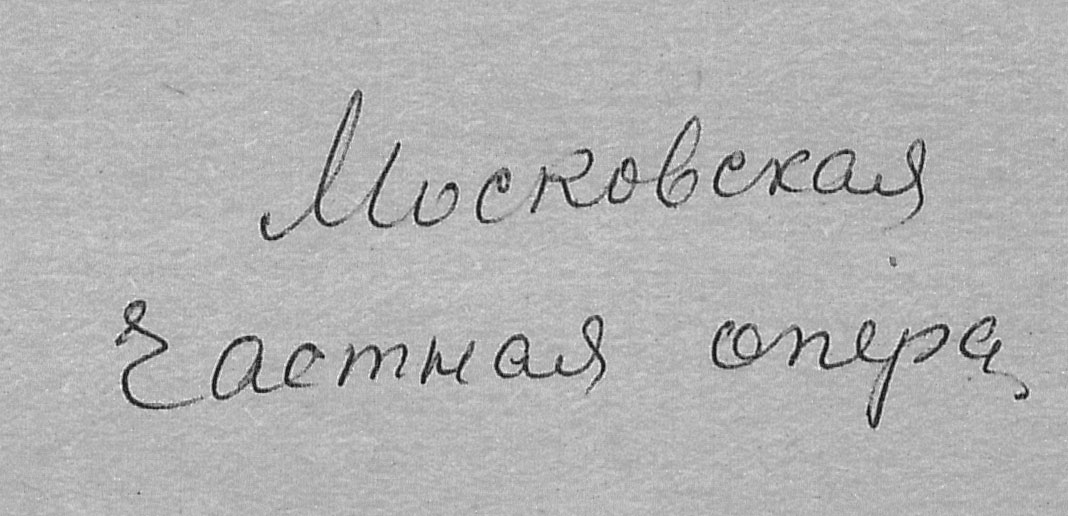 Московская
Частная опера